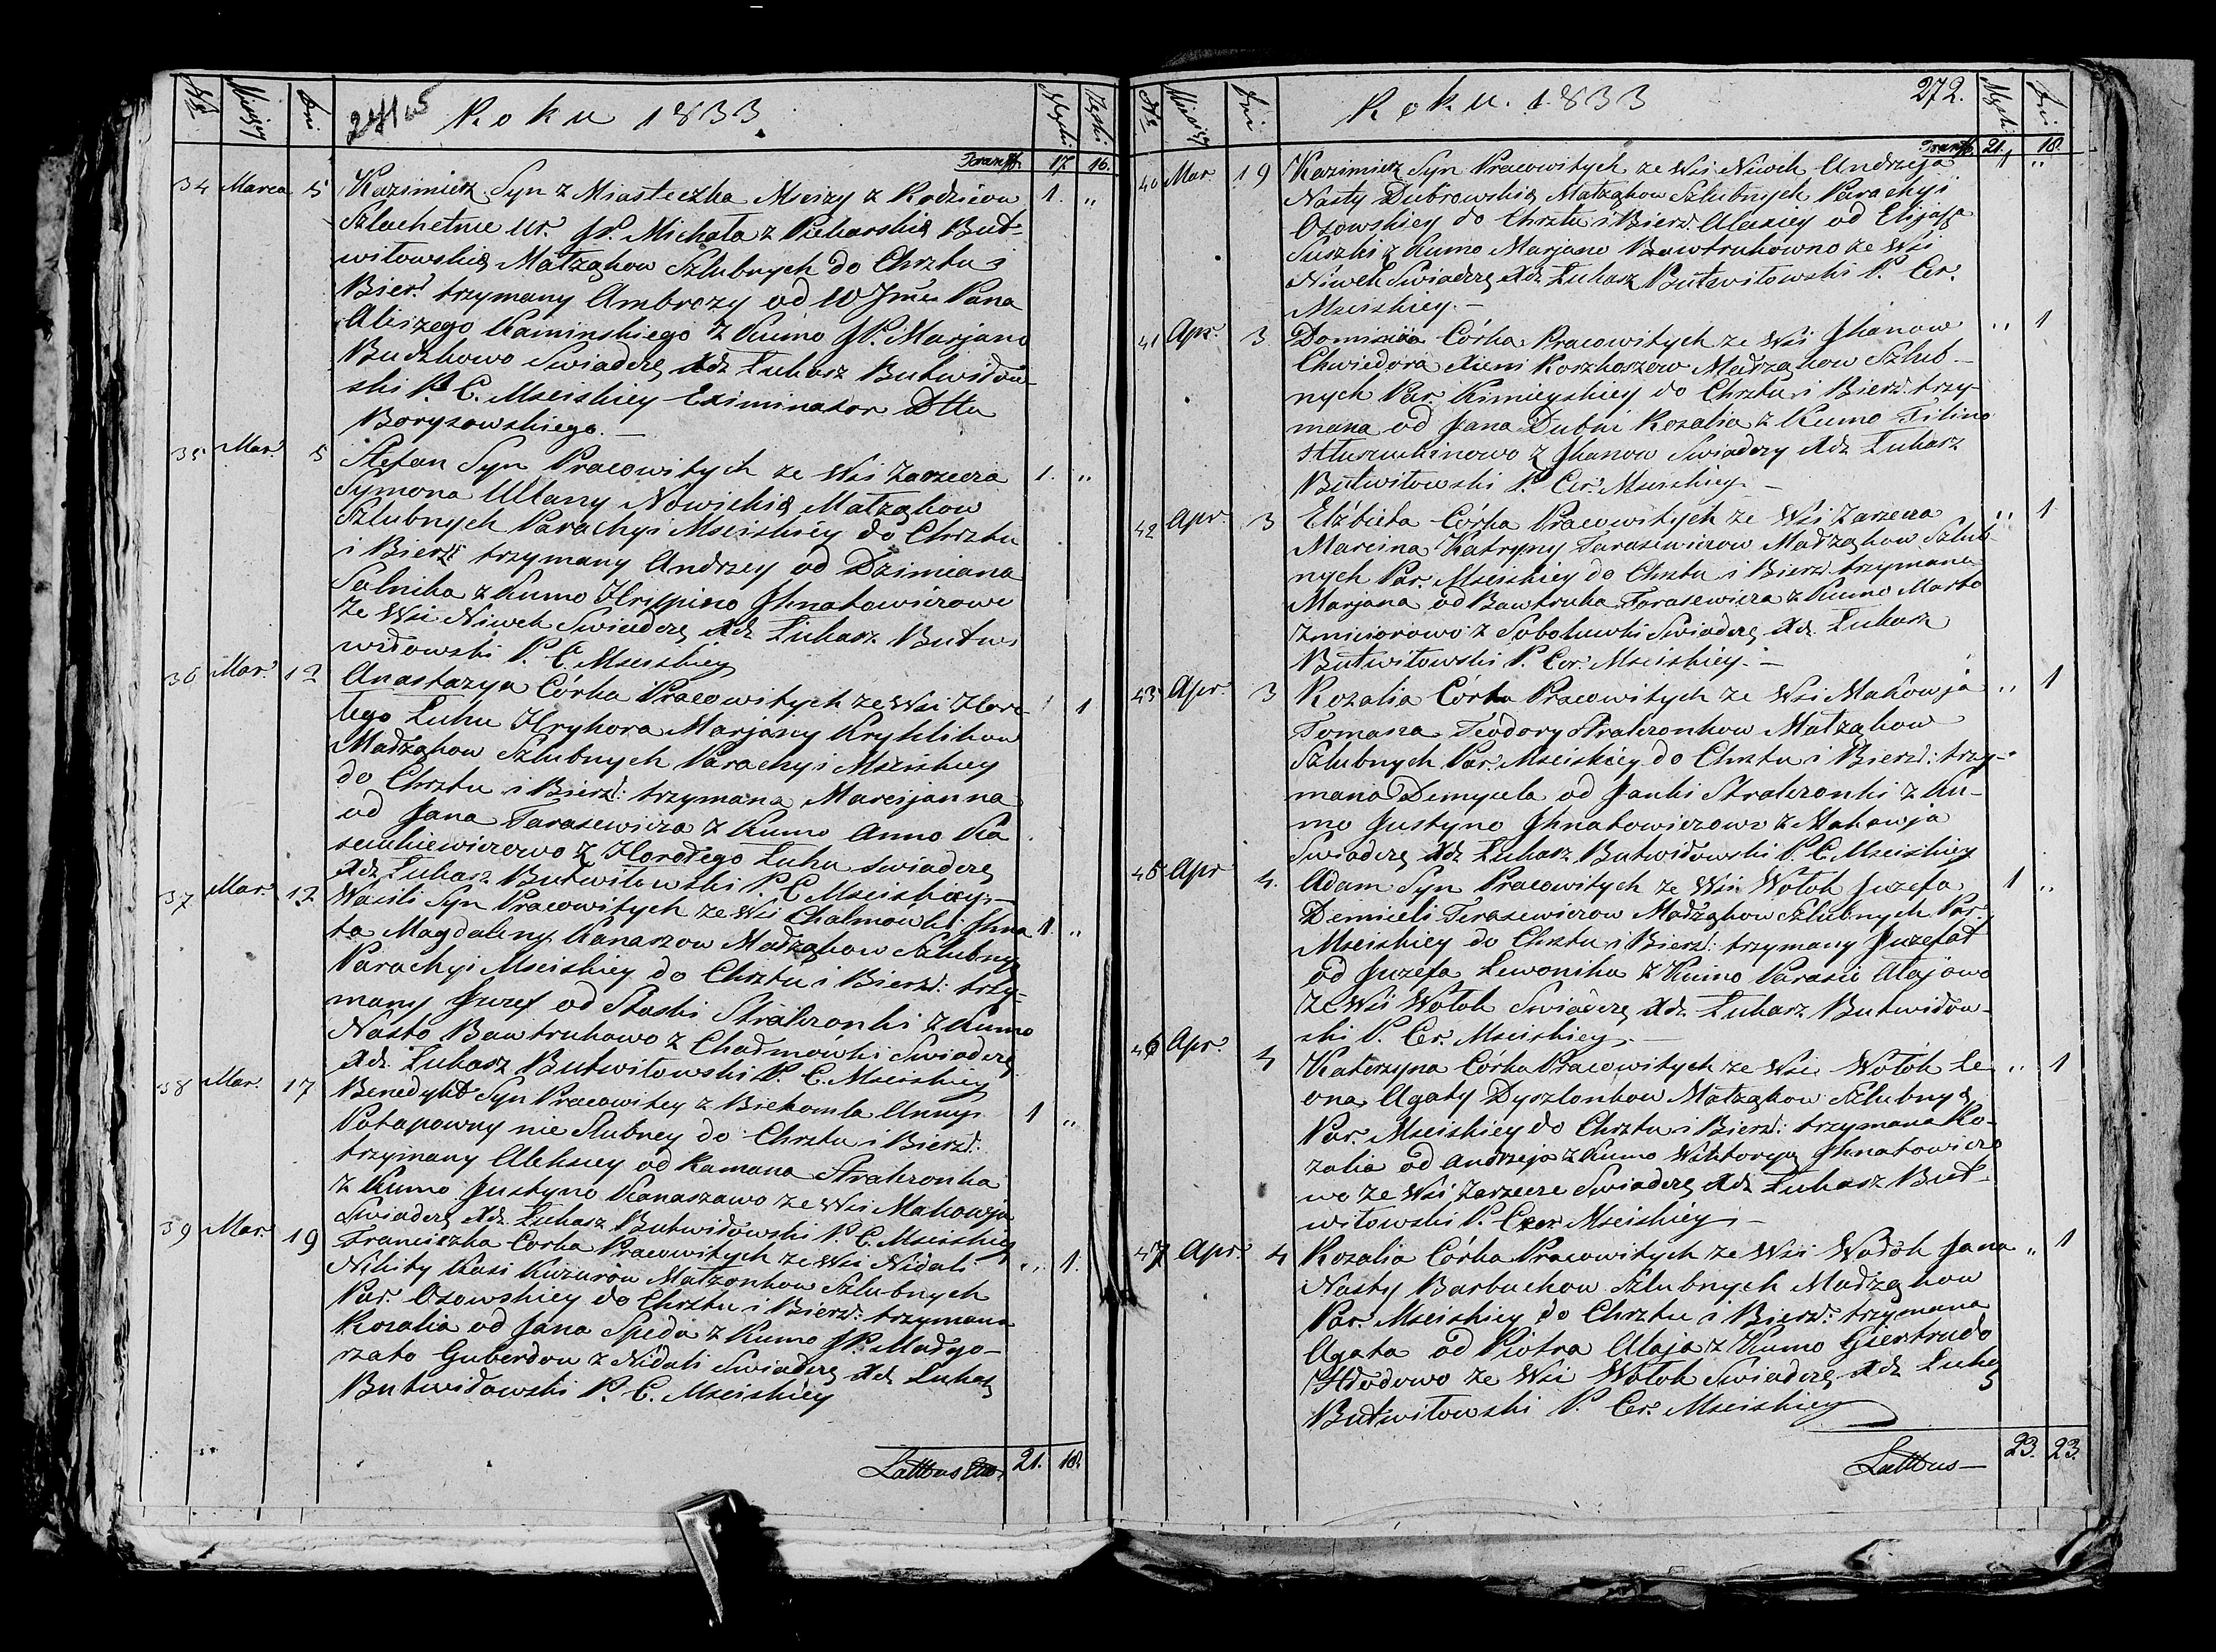 Nr Miesiąc Dni Roku 1833 Męzki Zęzki
Transp. 17. 16.
34 Marca 5 Kazimierz Syn z Miasteczka Mscizy z Rodziców 1. „
Szlachetnie Ur. JP. Michała z Piekarskich But-
witowskich Matząkow Szlubnych do Chrztu i
Bierz. trzymany Ambrozy od W Jmci Pana
Alizego Kaminskiego z Kumo JP. Marjano
Budzkowo Swiadczę Xdz Łukasz Butwidow-
ski P. C. Msciskiey Eximinator Dttu
Borysowskiego. —
35 Mar. 5 Stefan Syn Pracowitych ze Wsi Zarzecza 1. „
Symona Ullany Nowickich Matząkow
Szlubnych Parachyi Msciskiey do Chrztu
i Bierz trzymany Andrzey od Dzimiana
Salnika z Kumo Hrypino Jhnatowiczowo
ze Wsi Niwek Swiadczę Xdz Łukasz Butwi
widowski P. C. Msciskiey
36 Mar. 12 Anastazya Córka Pracowitych ze Wsi Horo- „ 1
łego Łuhu Hryhora Marjany Kryklikow
Madząkow Szlubnych Parachyi Msciskiey
do Chrztu i Bierz: trzymana Marcijanna
od Jana Tarasewicza z Kumo Anno Ka
seukiewiczowo z Horołego Łuhu swiadczę
Xdz Łukasz Butwitowski P. C Msciskiey —
37 Mar. 12 Wasili Syn Pracowitych ze Wsi Chalmowki Jhna 1. „
ta Magdaleny Kanaszow Madząkow Szlubnych
Parachyi Msciskiey do Chrztu i Bierz: trzy-
many Juzef od Staski Strakronki z Kumo
Nasto Bawtrukowo z Chadmowki Swiadczę
Xdz. Łukasz Butwitowski P. C. Msciskiey
38 Mar. 17 Benedykt Syn Pracowitey z Biehomla Annys 1 „
Potapowny nie Slubney do Chrztu i Bierz:
trzymany Aleksiey od Ramana Strakronka
z Kumo Justyno Kanaszawo ze Wsi Makowja
Swiadczę Xdz. Łukasz Butwidowski P. C. Msciskiey
39 Mar. 19 Franciszka Corka Pracowitych ze Wsi Nidali „ 1.
Nikity Kasi Kuzurow Matzonkow Szlubnych
Par. Osowskiey do Chrztu i Bierz: trzymana
Rozalia od Jana Speda z Kumo JP. Madgo-
rzato Guberdow z Nidali Swiadczę Xdz Łukasz
Butwidowski P. C. Msciskiey
Lattus 21. 18.
Nr Miesiąc Dni Roku. 1833 272. Męzki
Transp. 21. 18.
40 Mar 19 Kazimierz Syn Pracowitych ze Wsi Niwek Andrzeja 1 „
Nasty Dubrowskich Matząkow Szlubnych Parachyi
Osowskiey do Chrztu i Bierz. Alexiey od Elijasza
Suszki z Kumo Marjano Bawtrukowno ze Wsi
Niwek Swiadczę Xdz Łukasz Butwitowski P. Cer.
Msciskiey. —
41 Apr. 3 Córka Pracowitych ze Wsi Jhanow „ 1
Chwiedora Xieni Koszkoszow Madząkow Szlub-
nych Par. Kimieyskiey do Chrztu i Bierz. trzy-
mana od Jana Dubii Rozalia z Kumo Filimo
z Jhanow Swiadczy Xdz Łukasz
Butwitowski P. Cer. Msciskiey. —
42 Apr. 3 Elźbieta Córka Pracowitych ze Wsi Zarzecza „ 1
Marcina Katryny Tarasewiczow Madząkow Szlub
nych Par. Msciskiey do Chrztu i Bierz. trzymana
Marjana od Bawtruka Tarasewicza z Kumo Marto
Zmiciorowo z Sobolewki Swiadczę Xdz. Łukasz
Butwitowski P. Cer. Msciskiey. —
43 Apr. 3 Rozalia Córka Pracowitych ze Wsi Makowja „ 1
Tomasza Teodory Strakronkow Matząkow
Szlubnych Par. Msciskiey do Chrztu i Bierz: trzy-
mana Demycela od Janki Strakronki z Ku-
mo Justyno Jhnatowiczowo z Makowja
Swiadczę Xdz Łukasz Butwidowski P. C. Msciskiey
45 Apr 4. Adam Syn Pracowitych ze Wsi Wołok Juzefa 1 „
Demiceli Terasewiczow Madząkow Szlubnych Par.
Msciskiey do Chrztu i Bierz: trzymany Juzefat
od Juzefa Lewonika z Kumo Parasii Alajowo
ze Wsi Wołok Swiadczę Xdz. Łukasz Butwidow-
ski P. Cer. Msciskiey. —
46 Apr. 4 Katerzyna Córka Pracowitych ze Wsi Wołok Le „ 1
ona Agaty Dyszlonkow Matząkow Szlubnych
Par. Msciskiey do Chrztu i Bierz: trzymana Ro-
zalia od Andrzeja z Kumo Wiktorya Jhnatowiczo
wo ze Wsi Zarzecze Swiadczę Xdz Łukasz But-
witowski P. Cer Msciskiey —
47 Apr. 4 Rozalia Córka Pracowitych ze Wsi Wodok Jana „ 1
Nasty Barbuckow Szlubnych Madząkow
Par. Msciskiey do Chrztu i Bierz: trzymana
Agata od Piotra Alaja z Kumo Giertrudo
Hdodowo ze Wsi Wołok Swiadczę Xdz Łukasz
Butwitowski P. Cer. Msciskiey
Lattus — 23. 23.